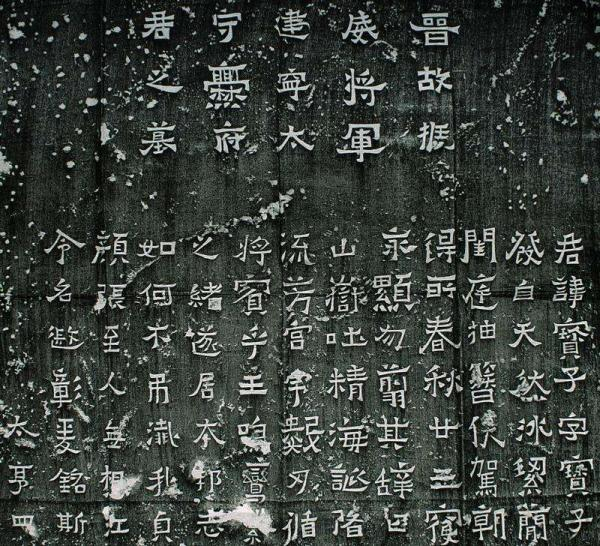 晉故振
威將軍
建寧太
守爨府
君之墓
君諱寶子字寶子
發自天然冰絜簡
閨庭抽簪俟駕朝
得所春秋廿三寢
永顯勿翦其辭曰
山嶽吐精海誕降
流芳宮宇數刃循
將賓乎王鳴鸞紫
之緒遂居本邦志
如何不弔殲我貞
顏張至人無相江
令名遐彰爰銘斯
太亨四